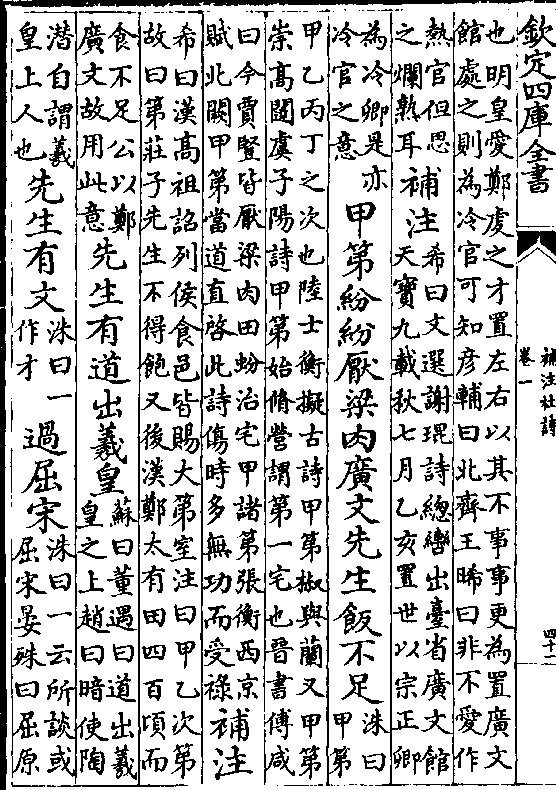 欽定四庫全書
補注杜詩
卷一
四十一
也明皇愛鄭虔之才置左右以其不事事更為置廣文
館處之則為冷官可知彥輔曰北齊王晞曰非不愛作
熱官但思之爛熟耳補注希曰文選謝琨詩總轡出臺省廣文館天寶九載秋七月乙亥置世以宗正卿
為冷卿是亦冷官之意甲第紛紛厭粱肉廣文先生飯不足洙曰甲第
甲乙丙丁之次也陸士衡擬古詩甲第椒與蘭又甲第
崇高闥虞子陽詩甲第始脩營謂第一宅也晉書傅咸
曰今賈豎皆厭梁肉田蚡治宅甲諸第張衡西京賦此闕甲第當道直啓此詩傷時多無功而受祿補注
希曰漢高祖詔列侯食邑皆賜大第室注曰甲乙次第
故曰第莊子先生不得飽又後漢鄭太有田四百頃而
食不足公以鄭廣文故用此意先生有道出羲皇蘇曰董遇曰道出羲皇之上趙曰暗使陶
潛自謂羲皇上人也先生有文洙曰一作才過屈宋洙曰一云所談或屈宋晏殊曰屈原